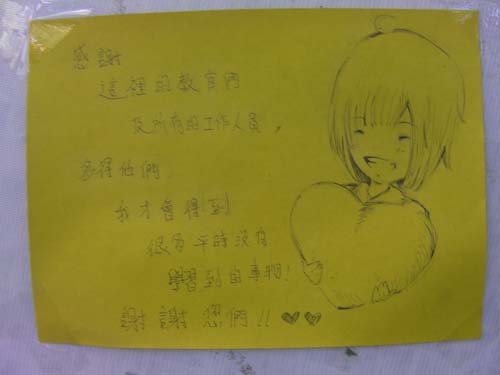 感謝
這裡的教官們
及所有的工作人員,
多得他們,
我才會得到
很多平時沒有
學習到的事物!
謝謝您們!! ♥♥